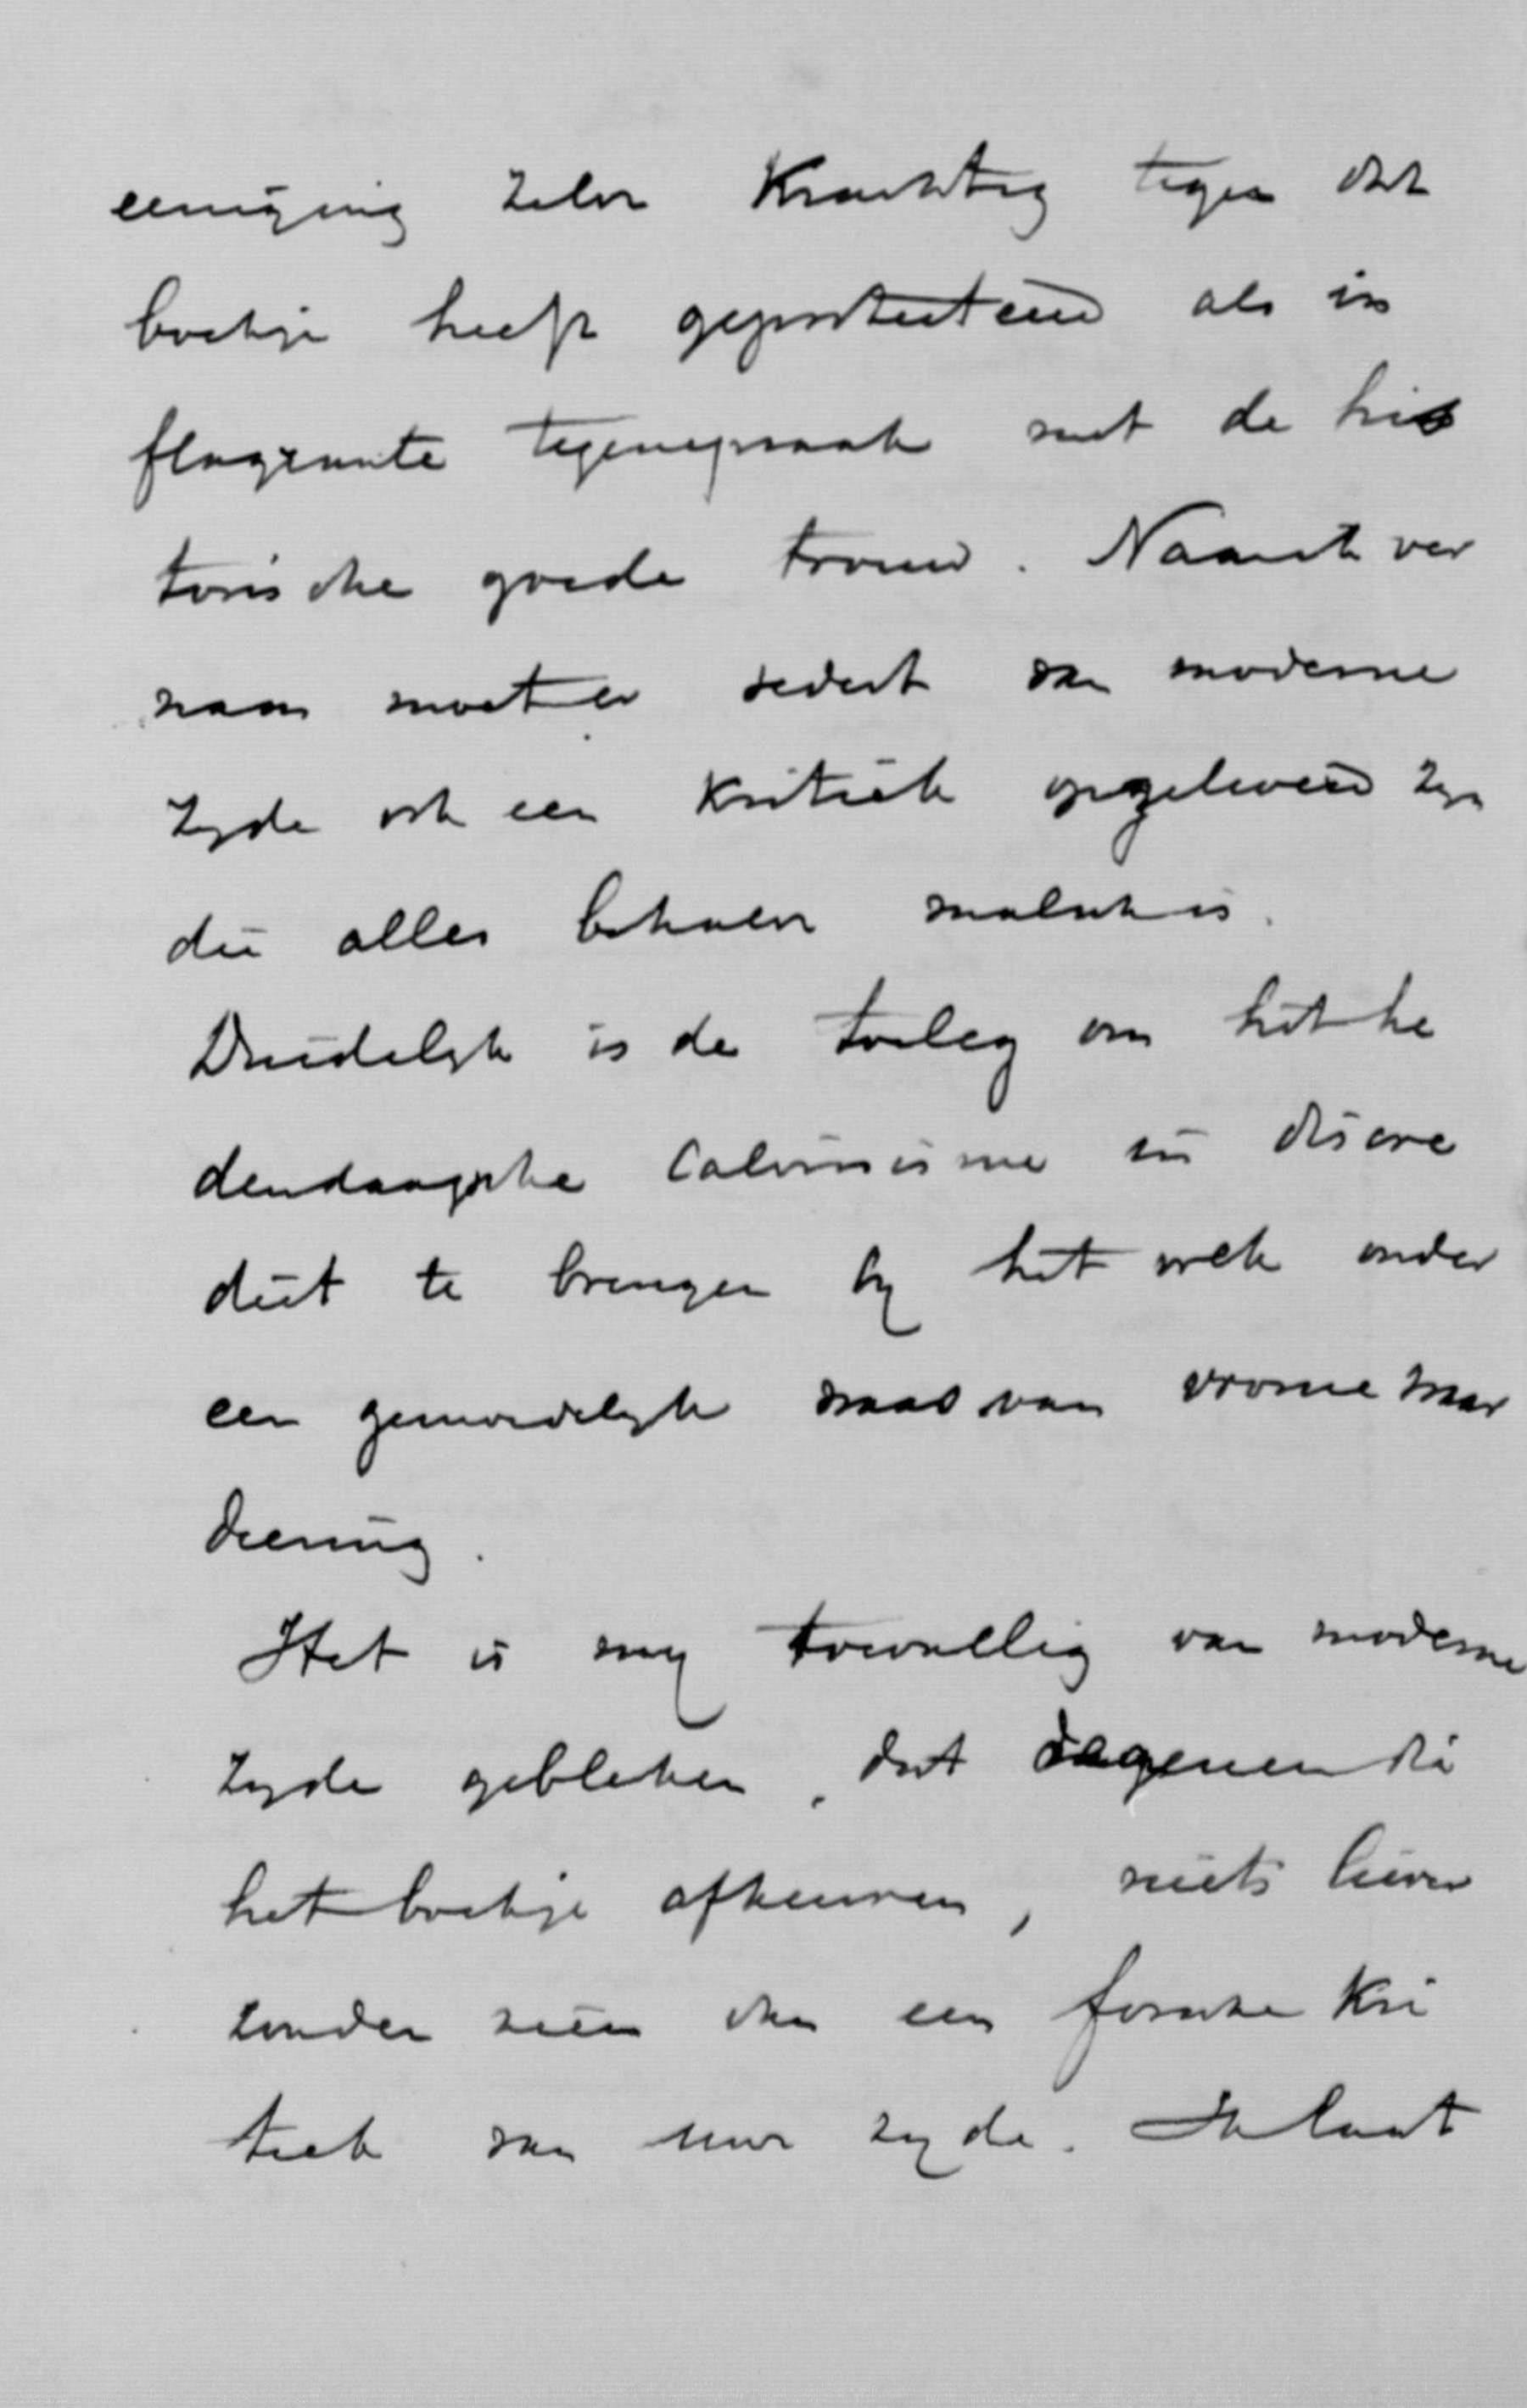 eeniging zelve Krachtig tegen dit
boekje heeft geprotesteerd als in
flagrante tegenspraak met de his
torische goede trouw. Naar ik ver
naam moet er sedert van moderne
zyde ook een Kritiek opgeleverd zyn
die alles behalve malsch is.
Duidelyk is de toeleg om het he
dendaagsche Calvinisme in discre
diet te brengen by het volk onder
een gemoedelyk waas van vrome waar
deering.
Het is my toevallig van moderne
zyde gebleken, dat degenen die
het boekje afkeuren, niets liever
zouden zien dan een forsche Kri
tiek van uwe zyde. Ik laat